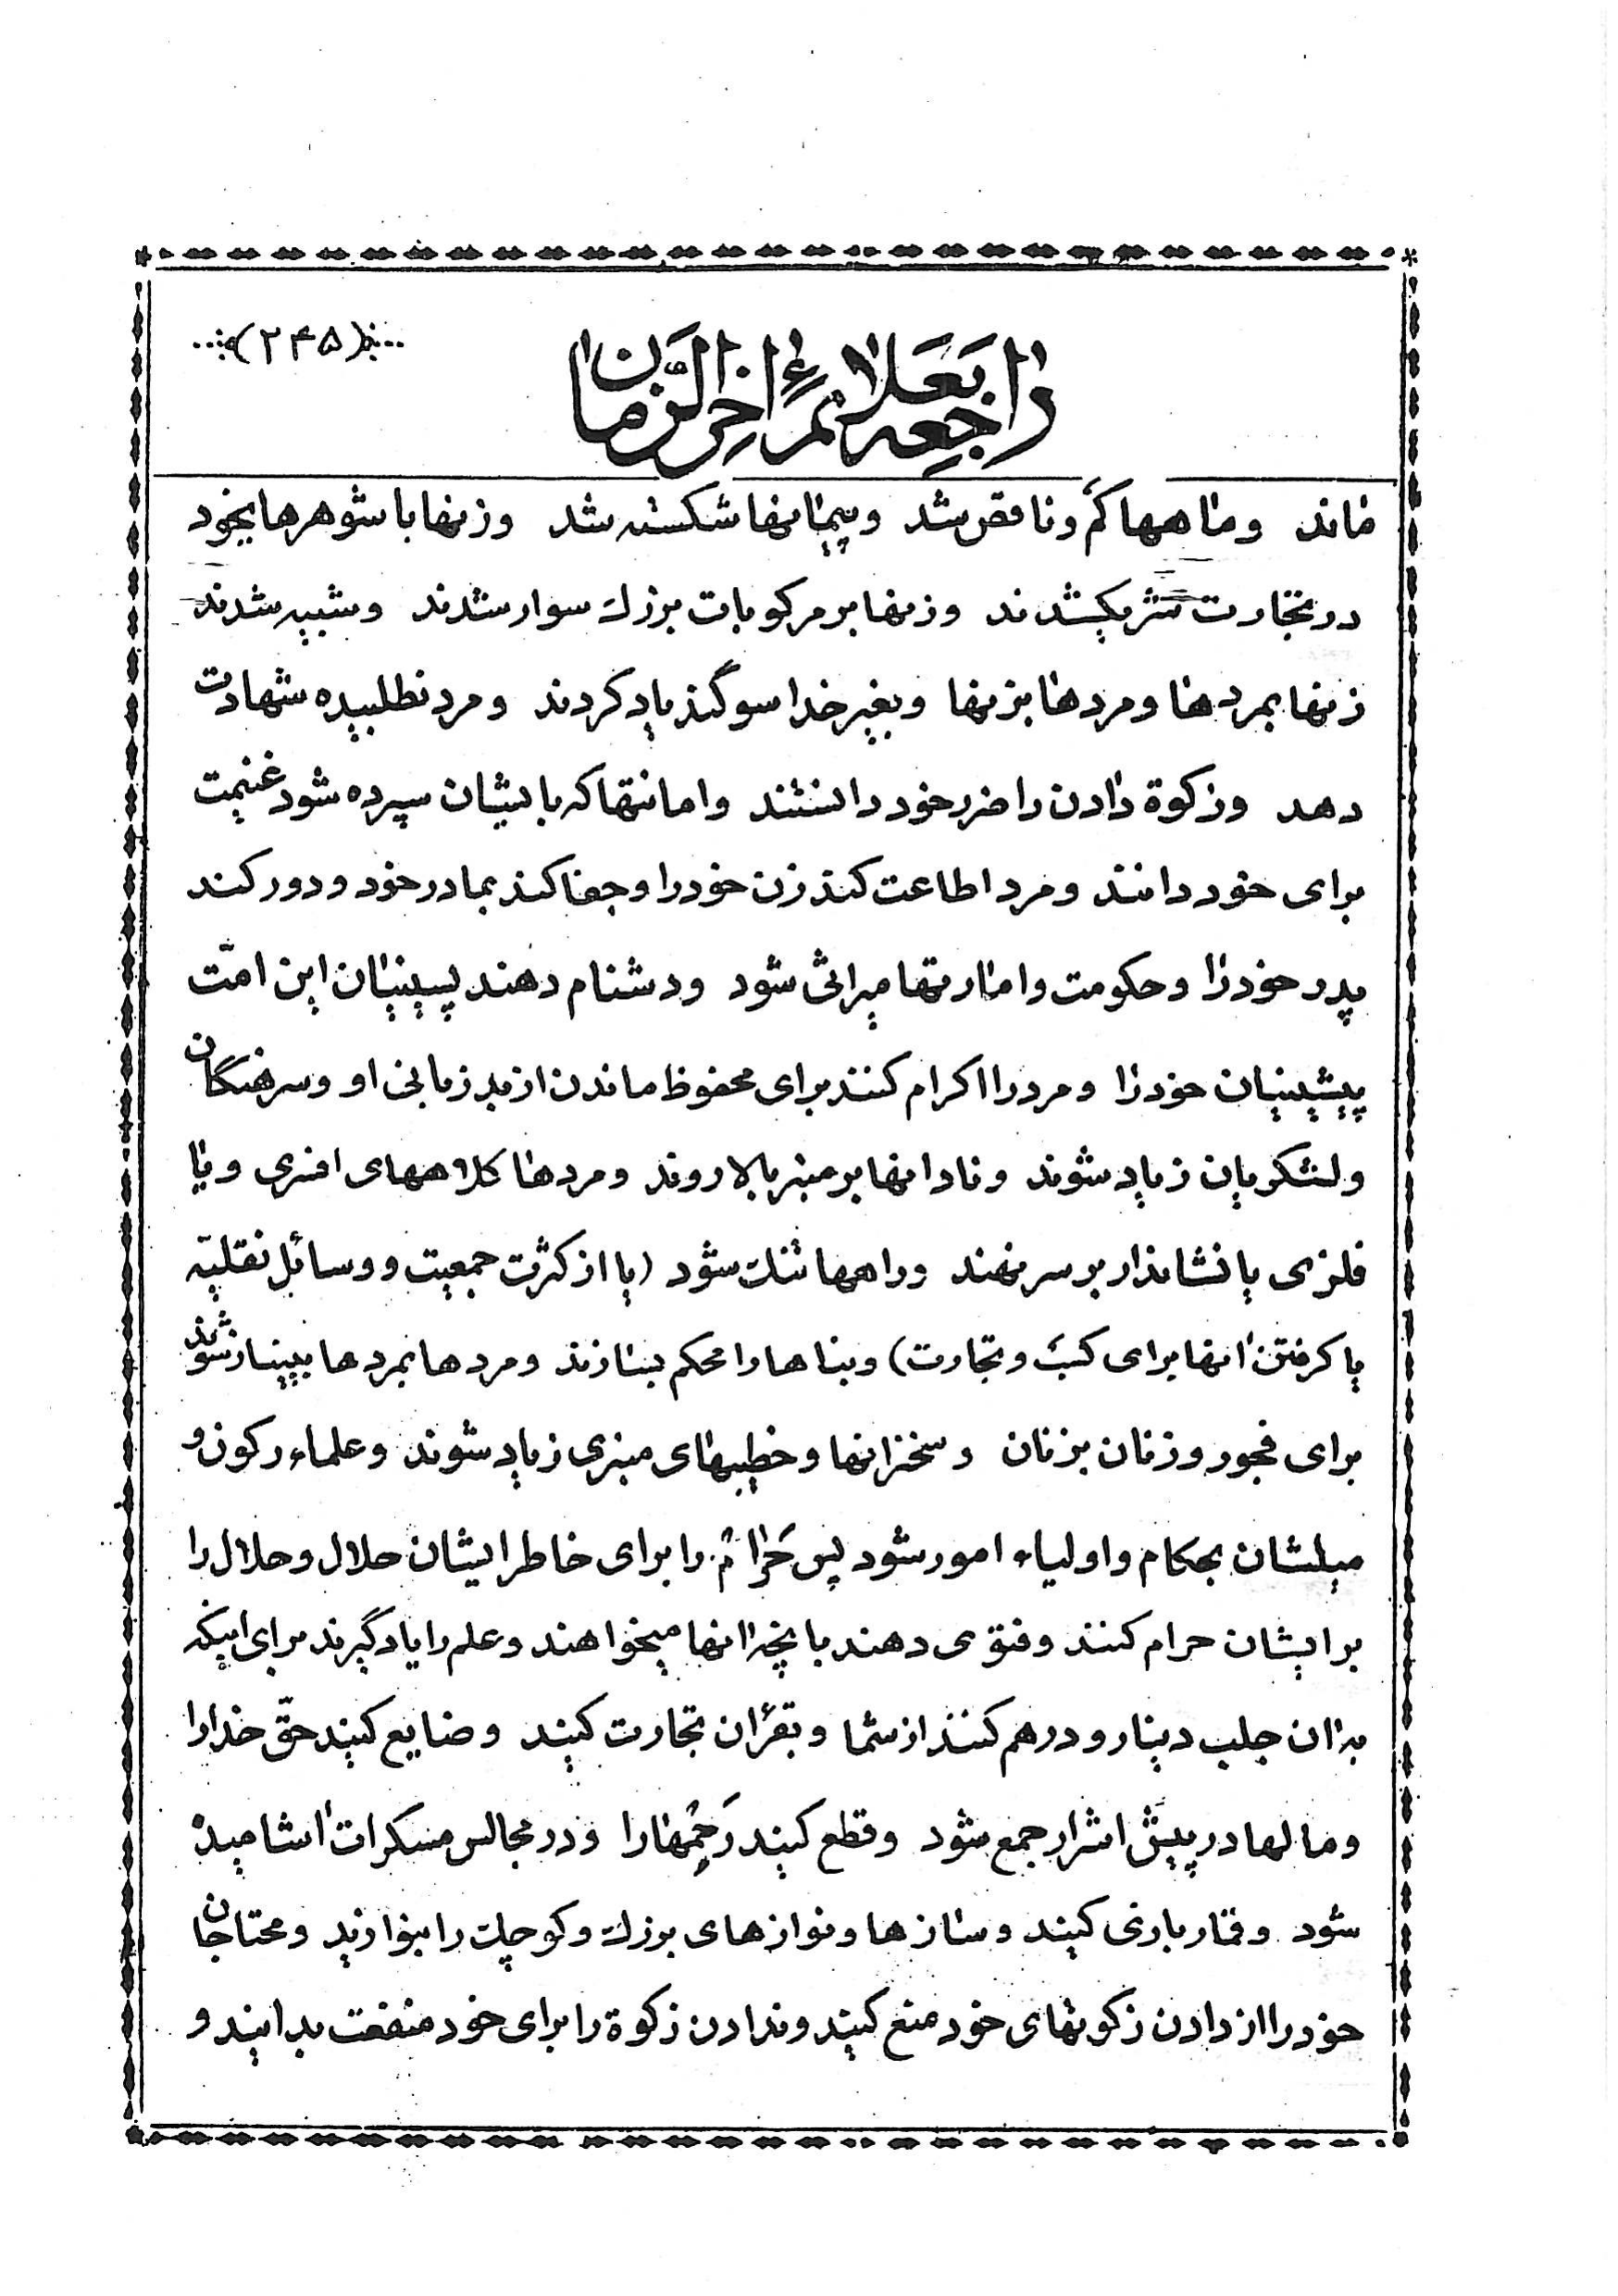 (۲۴۵)
راجعه بعلائم اخر الزمان
ماند و ماهها کم و ناقص شد و پیمانها شکسته شد و زنها با شوهرهایخود
در تجارت شریکشدند و زنها بر مرکوبات بزرك سوار شدند و شبیه شدند
زنها بمردها و مردها بزنها و بغیر خدا سوگند یاد کردند و مرد نطلبیده شهادت
دهد و زکوة دادن را ضرر خود دانستند و امانتها که بایشان سپرده شود غنیمت
برای خود دانند و مرد اطاعت کند زن خود را و جفا کند بمادر خود و دور کند
پدر خود را و حکومت و امارتها میراثی شود و دشنام دهند پسینیان این امّت
پیشینیان خود را و مرد را اکرام کنند برای محفوظ ماندن از بد زبانی او و سرهنگان
و لشکریان زیاد شوند و نادانها بر منبر بالا روند و مردها کلاههای افسری و یا
فلزی یا نشاندار بر سر نهند و راهها تنك شود (یا از کثرت جمعیت و وسائل نقلیّه
یا گرفتن انها برای کسب و تجارت) و بناها را محکم بسازند و مردها بمردها بینیاز شوند
برای فجور و زنان بزنان و سخنرانها و خطیبهای منبری زیاد شوند و علماء رکون و
میلشان بحکام و اولیاء امور شود پس حَرام را برای خاطر ایشان حلال و حلال را
برایشان حرام کنند و فتوی دهند بانچه انها میخواهند و علم را یاد گیرند برای اینکه
بدان جلب دینار و درهم کنند از شما و بقرآن تجارت کنید و ضایع کنید حقّ خدا را
و مالها در پیش اشرار جمع شود و قطع کنید رَحِمها را و در مجالس مسکرات آشامیده
شود و قمار بازی کنید و سازها و نوازهای بزرك و کوچك را بنوازید و محتاجان
خود را از دادن زکوتهای خود منع کنید و ندادن زکوة را برای خود منفعت بدانید و